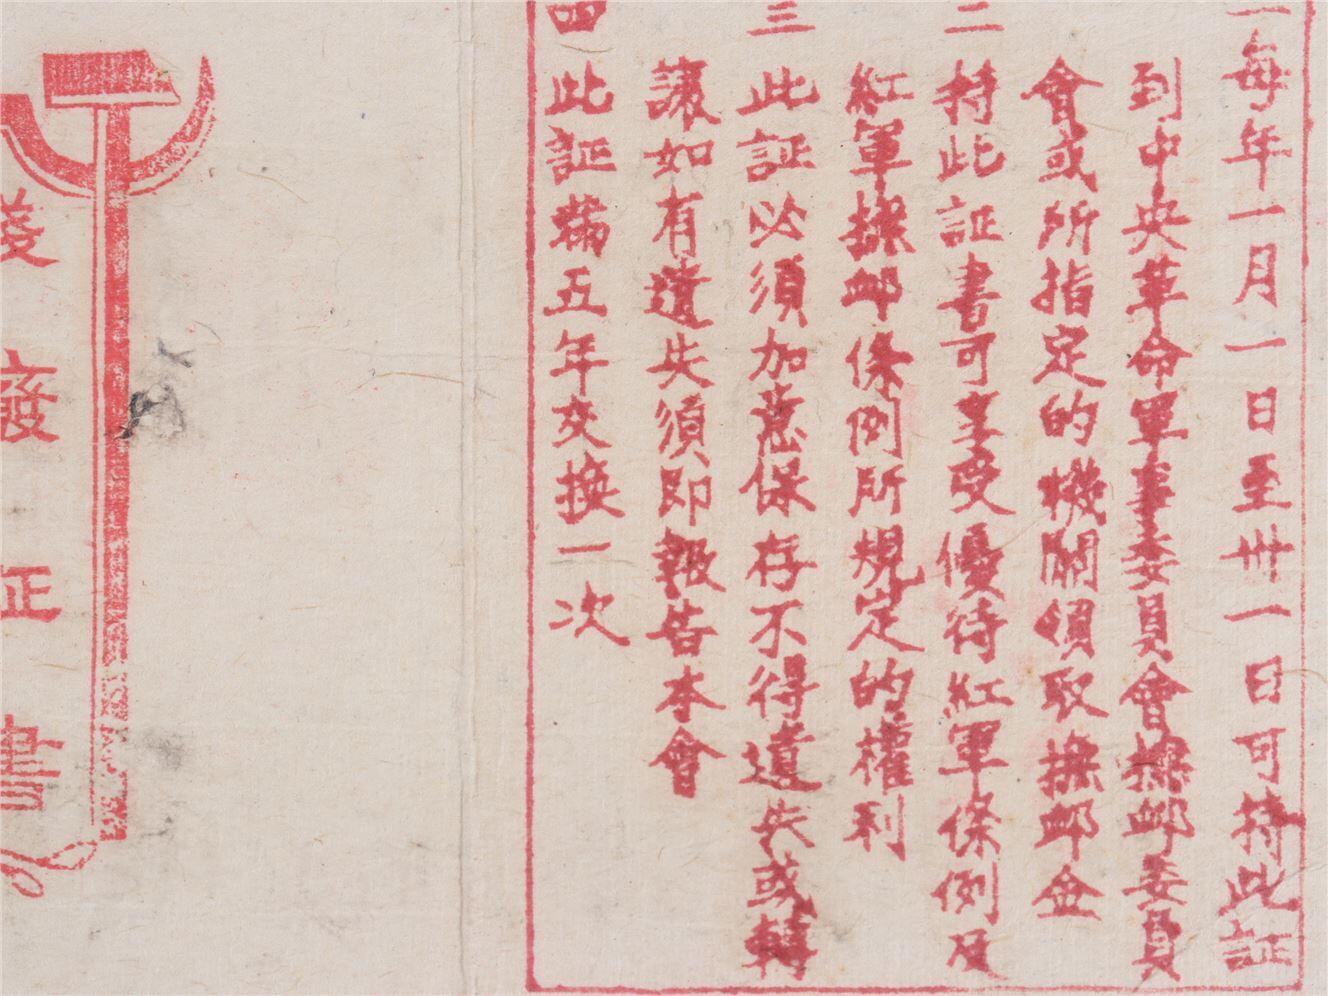 一每年一月一日至卅一日可持此証
到中央革命軍事委員會撫邺委員
會或所指定的機關領取撫邺金
二持此証書可享受優待紅軍條例及
紅軍撫邺條例所規定的權利
三此証必須加意保存不得遺失或轉
讓如有遺失須即報告本會
四此証滿五年交換一次
殘廢証書